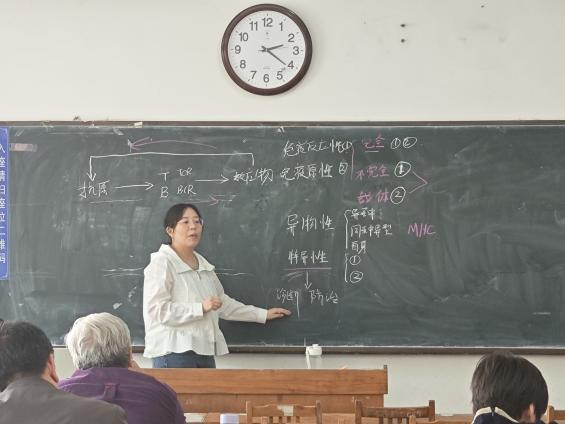 入座请扫座位二维码
12 1 2 3 4 5 6 7 8 9 10 11
抗原
T TCR
B BCR
效应物
免疫反应性① 完全 ①②
免疫原性② 不完全 ①
载体 ②
异物性
异种
同种异型
自身
MHC
特异性
①
②
诊断 防治